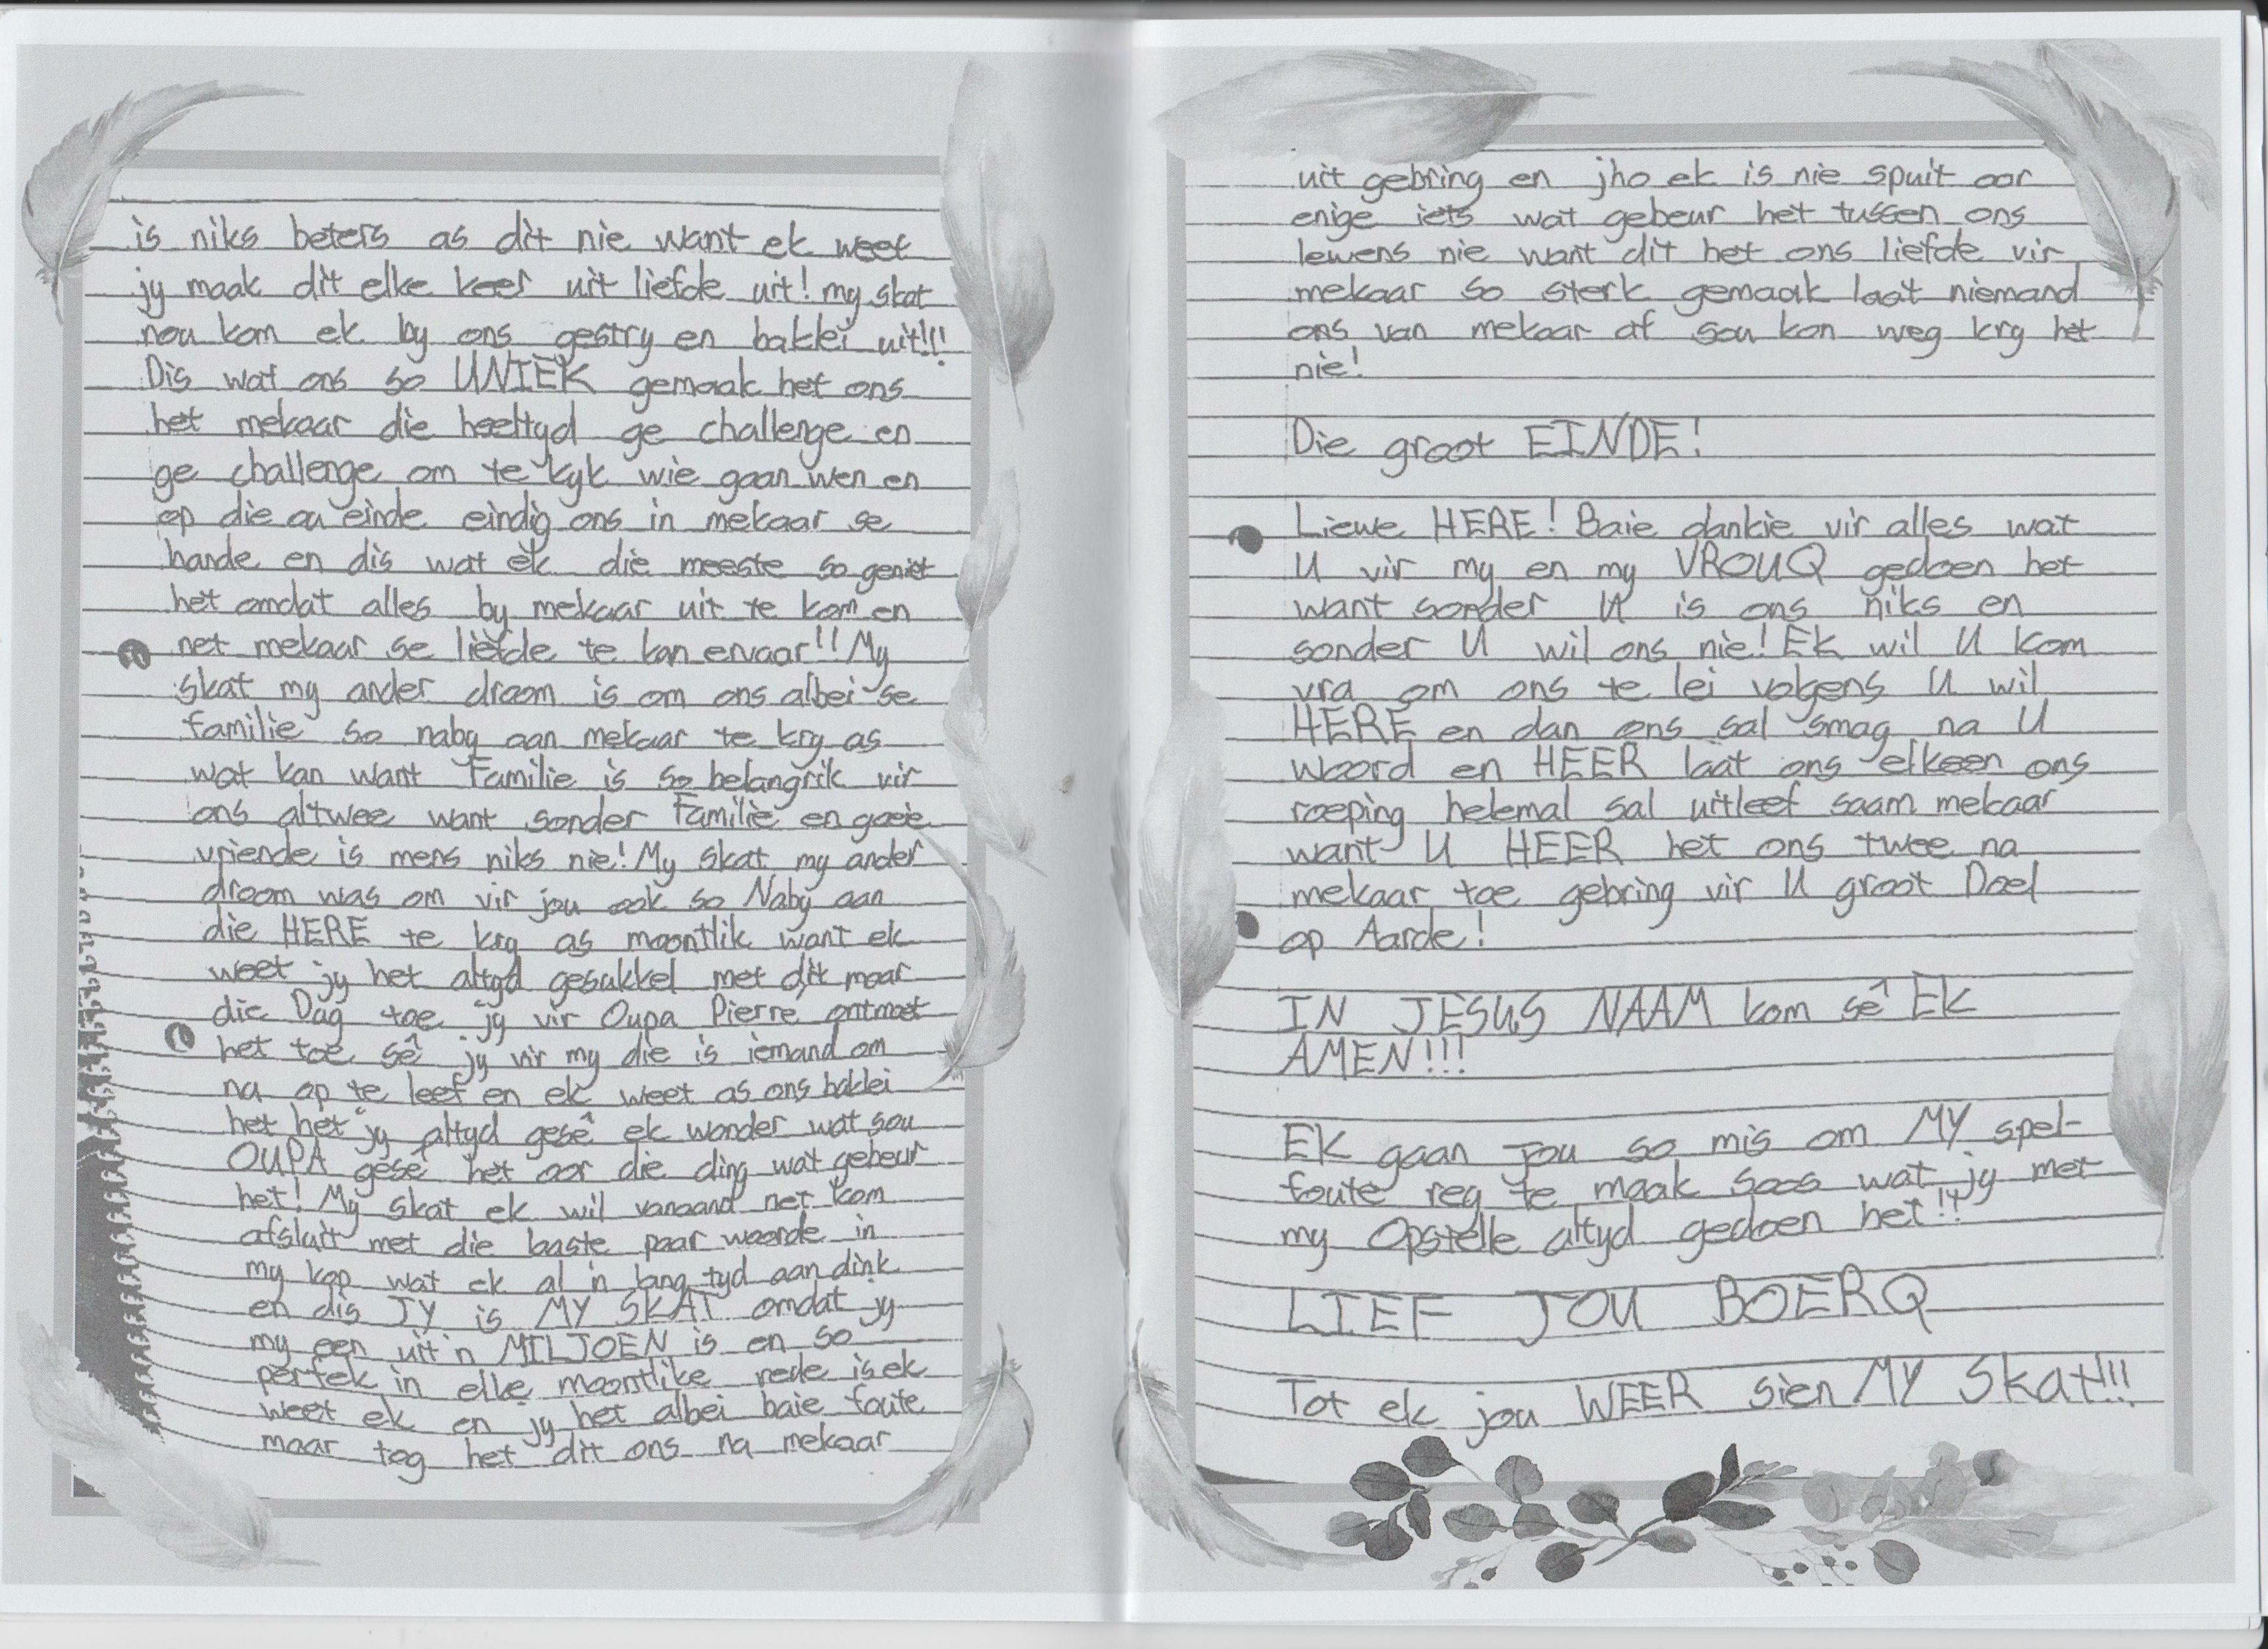 is niks beters as dit nie want ek weet
jy maak dit elke keer uit liefde uit! my skat
nou kom ek by ons gestry en baklei uit!!!
Dis wat ons so UNIEK gemaak het ons
het mekaar die heeltyd ge challenge en
ge challenge om te kyk wie gaan wen en
op die ou einde eindig ons in mekaar se
hande en dis wat ek die meeste so geniet
het omdat alles by mekaar uit te kom en
net mekaar se liefde te kan ervaar!! My
skat my ander droom is om ons albei se
familie so naby aan mekaar te kry as
wat kan want Familie is so belangrik vir
ons altwee want sonder Familie en goeie
vriende is mens niks nie! My skat my ander
droom was om vir jou ook so Naby aan
die HERE te kry as moontlik want ek
weet jy het altyd gesukkel met dit maar
die Dag toe jy vir Oupa Pierre ontmoet
het toe sê jy vir my die is iemand om
na op te leef en ek weet as ons baklei
het het jy altyd gesê ek wonder wat sou
OUPA gesê het oor die ding wat gebeur
het! My skat ek wil vanaand net kom
afsluit met die laaste paar woorde in
my kop wat ek al 'n lang tyd aan dink
en dis JY is MY SKAT omdat jy
my een uit 'n MILJOEN is en so
perfek in elke moontlike rede is ek
weet ek en jy het albei baie foute
maar tog het dit ons na mekaar
uit gebring en jho ek is nie spuit oor
enige iets wat gebeur het tussen ons
lewens nie want dit het ons liefde vir
mekaar so sterk gemaak laat niemand
ons van mekaar af sou kon weg kry het
nie!
Die groot EINDE!
Liewe HERE! Baie dankie vir alles wat
U vir my en my VROUQ gedoen het
want sonder U is ons niks en
sonder U wil ons nie! Ek wil U kom
vra om ons te lei volgens U wil
HERE en dan ons sal smag na U
woord en HEER laat ons elkeen ons
roeping helemal sal uitleef saam mekaar
want U HEER het ons twee na
mekaar toe gebring vir U groot Doel
op Aarde!
IN JESUS NAAM kom sê EK
AMEN!!!
EK gaan jou so mis om MY spel-
foute reg te maak soos wat jy met
my Opstelle altyd gedoen het!!
LIEF JOU BOERQ
Tot ek jou WEER sien MY Skat!!!